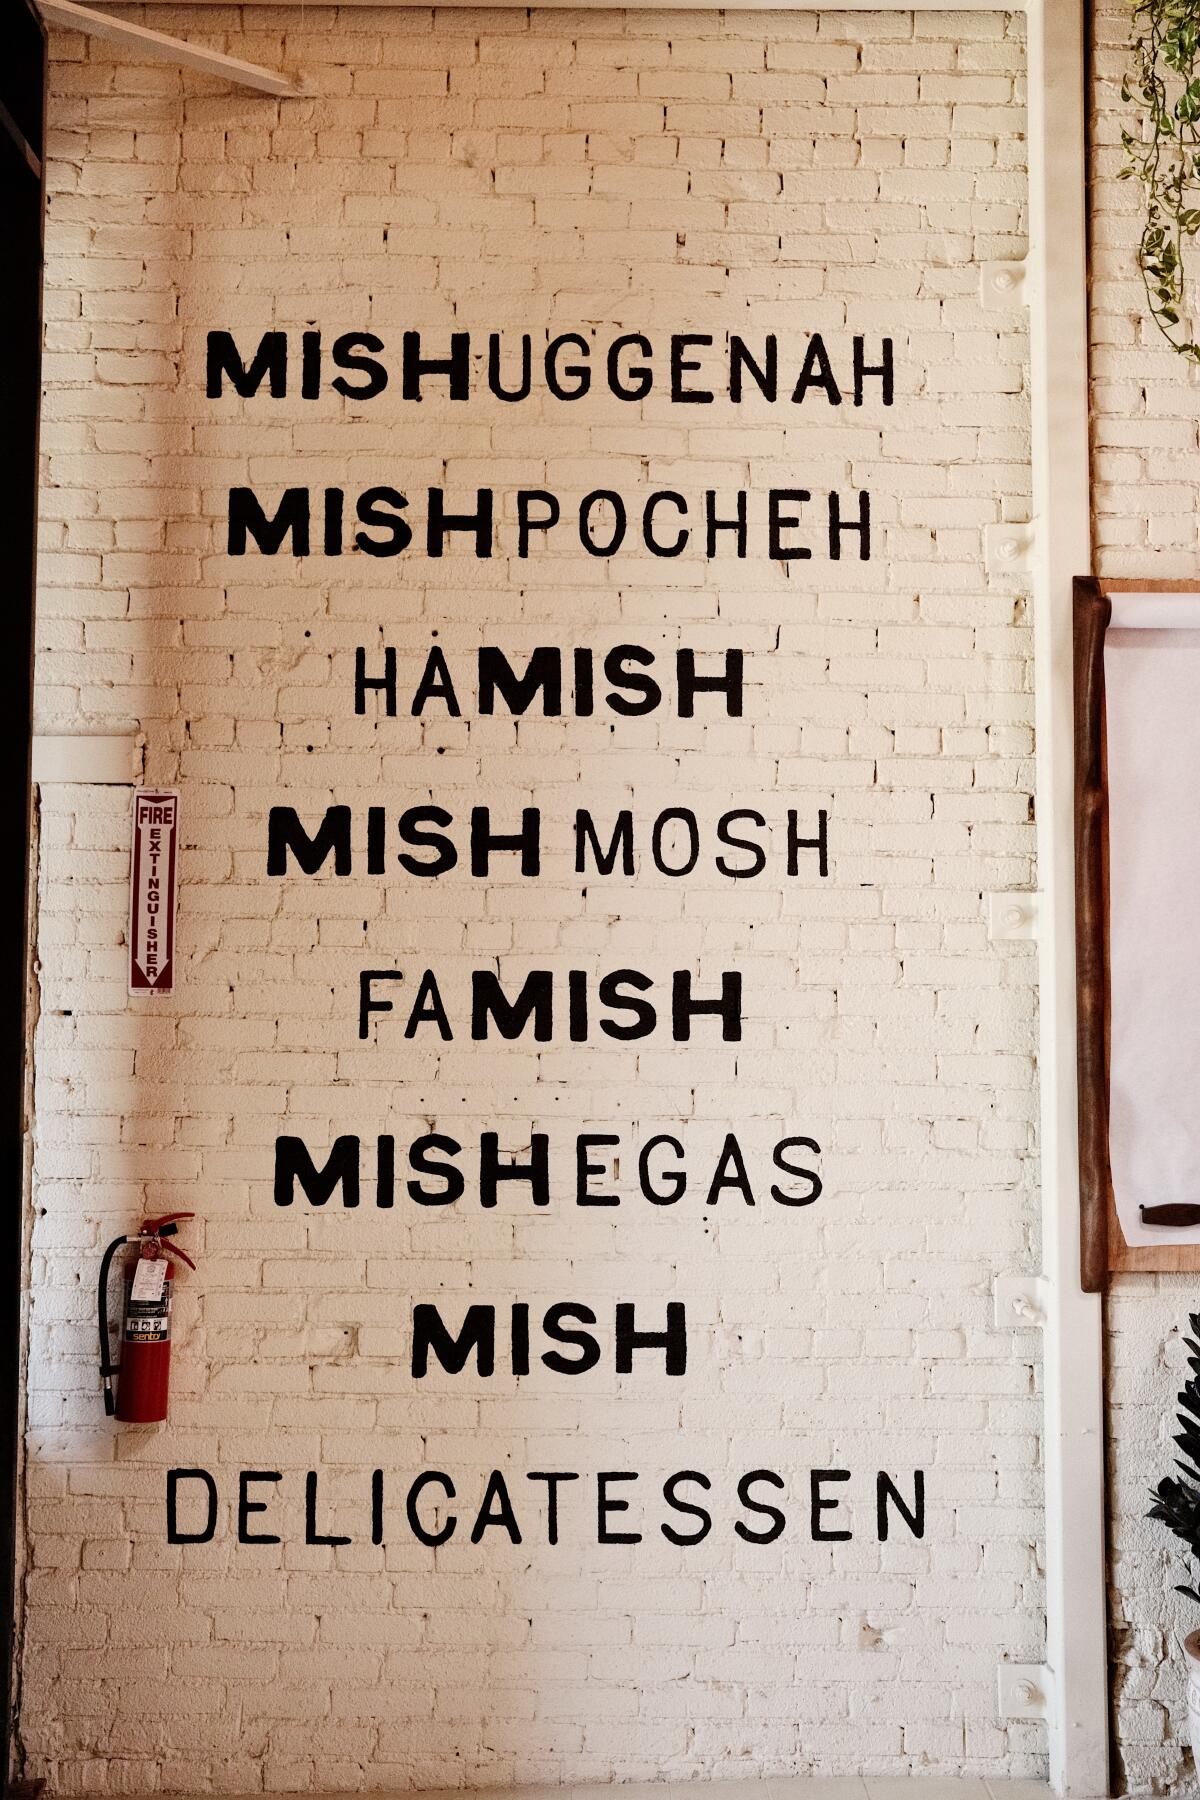 MISHUGGENAH
MISHPOCHEH
HAMISH
MISH MOSH
FIRE
EXTINGUISHER
FAMISH
MISHEGAS
MISH
sentry
DELICATESSEN